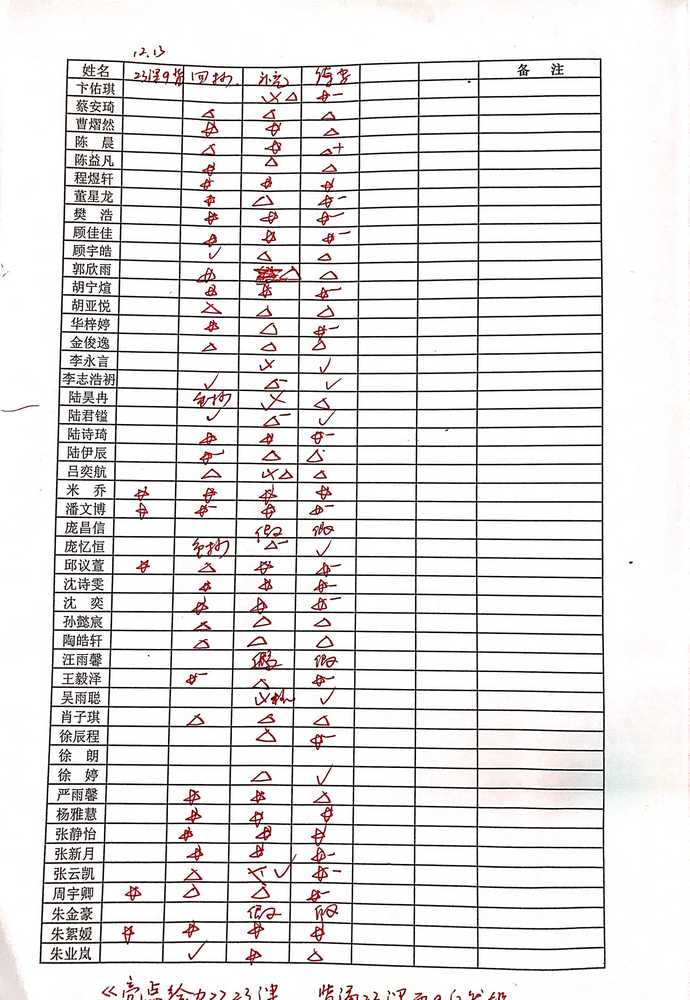 12.13
姓名 23课9背 回抄 备注
卞佑琪 ×△ #-
蔡安琦 △ △ △
曹熠然 # # △
陈晨 △ # △+
陈益凡 # △ △
程煜轩 # # #
董星龙 # △ #-
樊浩 # # #-
顾佳佳 # # #-
顾宇皓 ✓ △ △
郭欣雨 # △ △
胡宁煊 # # #-
胡亚悦 △ △ △
华梓婷 # △ #-
金俊逸 △ △ △
李永言 × ✓
李志浩礽 ✓ △- ✓
陆昊冉 × △
陆君镒 ✓ △- ✓
陆诗琦 # # #-
陆伊辰 #- △ △
吕奕航 △ ×△ △
米乔 # # # #
潘文博 # #- # #-
庞昌信 假 假
庞忆恒 △- ✓
邱议萱 # △ # #-
沈诗雯 # # #-
沈奕 # # #-
孙懿宸 △ △ △
陶皓轩 △ △ △
汪雨馨 假 假
王毅泽 #- △ #-
吴雨聪 ✓
肖子琪 △ △ △
徐辰程 △ #-
徐朗
徐婷 △ ✓
严雨馨 # # △
杨雅慧 # # #
张静怡 # # #
张新月 # # #-
张云凯 △ × ✓ #-
周宇卿 # △ △ #-
朱金豪 假 假
朱絮媛 # # # #
朱业岚 ✓ # △
《亮点给力22 23课